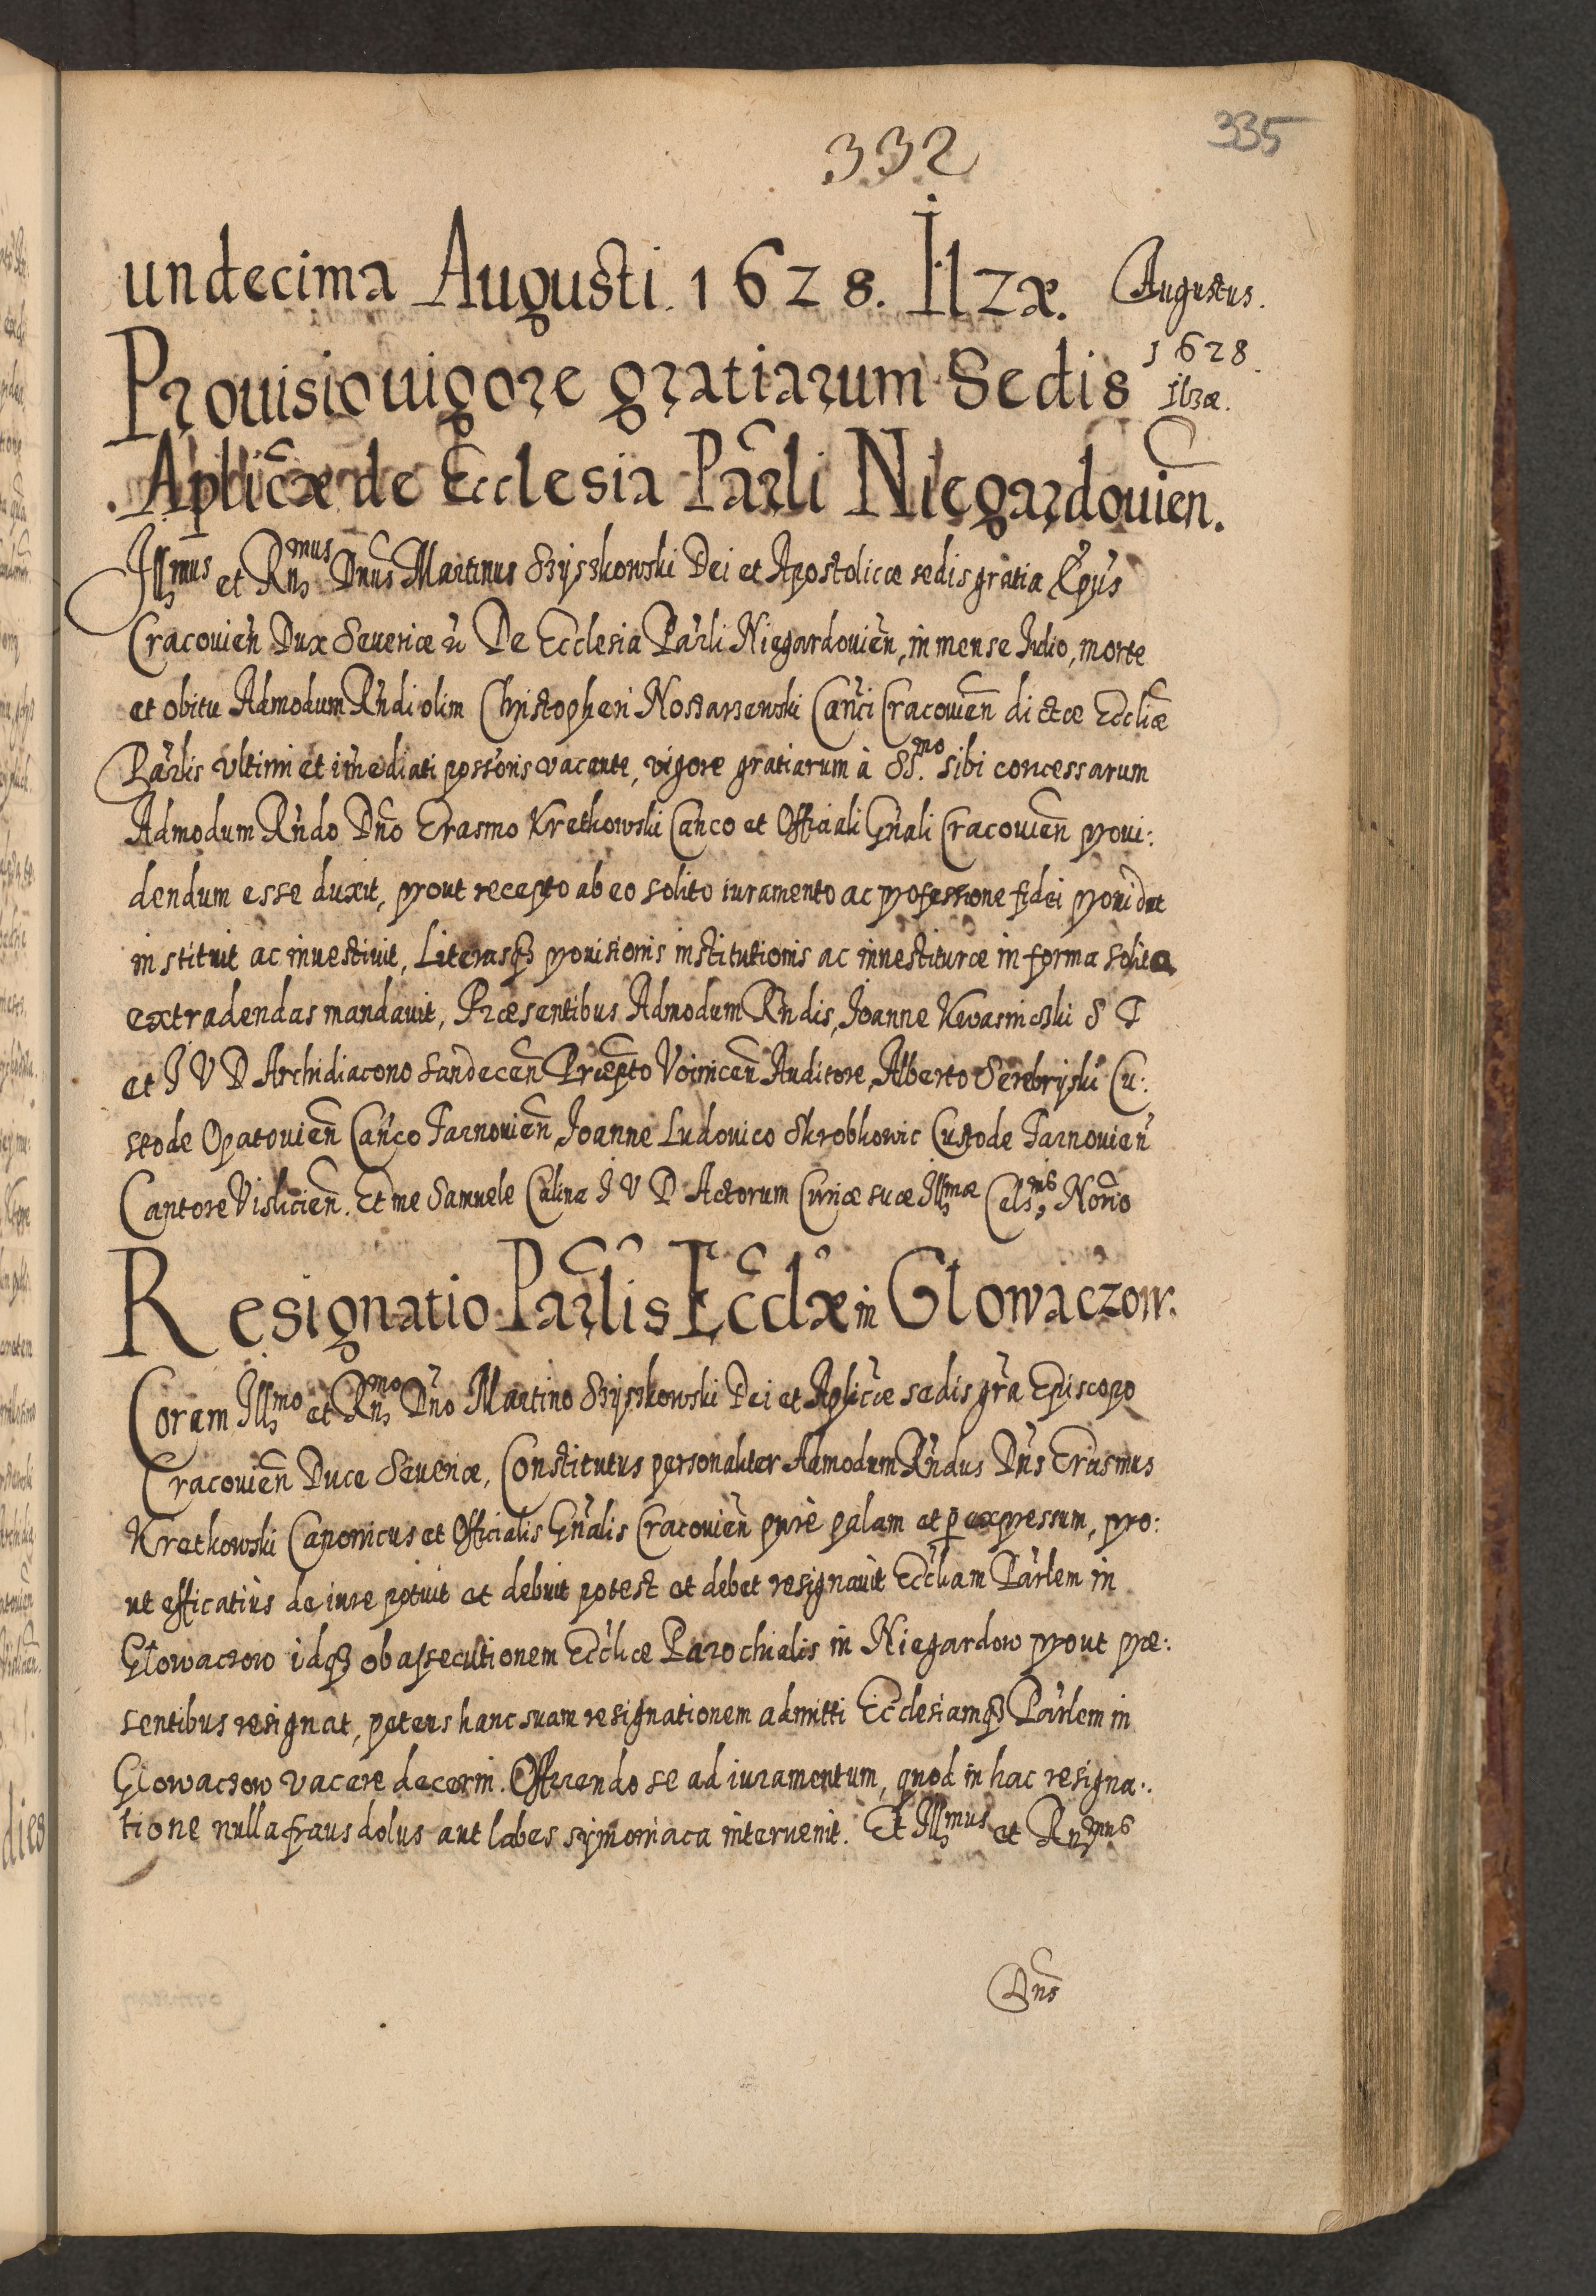 332
335
undecima Augusti. 1628. Ilzæ.
Augustus.
1628.
Ilzæ.
Prouisio uigore gratiarum Sedis
Aplicæ de Ecclesia Parli Niegardouien.
Illmus et Rnmus Dnus Martinus Szyszkowski Dei et Apostolicæ sedis gratia Epus
Cracouien Dux Seueriæ De Ecclesia Parli Niegardouien, in mense Iulio, morte
et obitu Admodum Rndi olim Christopheri Canci Cracouien dictæ Eccliæ
Parlis vltimi et imediati possoris vacante, vigore gratiarum à SS.mo sibi concessarum
Admodum Rndo Dno Erasmo Kretkowski Canco et Officiali Gnali Cracouien proui:
dendum esse duxit, prout recepto ab eo solito iuramento ac professione fidei prouidit
instituit ac inuestiuit, Literasq3 prouisionis institutionis ac inuestituræ in forma solita
extradendas mandauit, Præsentibus Admodum Rndis, Ioanne Kwasniowski S T
et I V D Archidiacono Sandecen Præpto Voinicen Auditore, Alberto Serebryski Cu:
stode Opatouien Canco Tarnouien Ioanne Ludouico Skrobkowic Custode Tarnouien
Cantore Vislicien. Et me Samuele Calina I V D Actorum Curiæ suæ Illmæ Celsnis Norio
Resignatio Parlis Ecclæ in Glowaczow.
Coram Illmo et Rnmo Dno Martino Szyszkowski Dei et Aplicæ sedis gra Episcopo
Cracouien Duce Seueriæ, Constitutus personaliter Admodum Rndus Dns Erasmus
Kretkowski Canonicus et Officialis Gnalis Cracouien purè palam et p expressum, pro:
ut efficatiùs de iure potuit et debuit potest et debet resignauit Eccliam Parlem in
Glowaczow idq3 ob assecutionem Eccliæ Parochialis in Niegardow prout præ:
sentibus resignat, petens hanc suam resignationem admitti Ecclesiamq3 Parlem in
Glowaczow vacare decerni. Offerendo se ad iuramentum, quod in hac resigna:
tione nulla fraus dolus aut labes symoniaca interuenit. Et Illmus et Rnmus
Dns